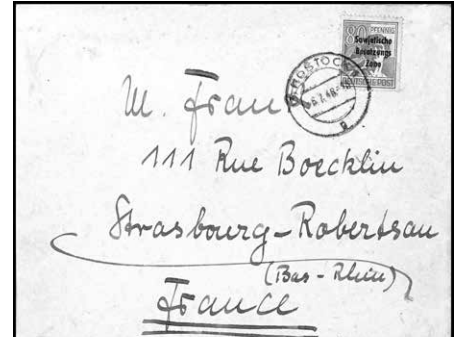 80 PFENNIG
Sowjetische
Besatzungs
Zone
DEUTSCHE POST
ROSTOCK
M. Fran
111 Rue Boecklin
Strasbourg-Robertsau
(Bas-Rhin)
France